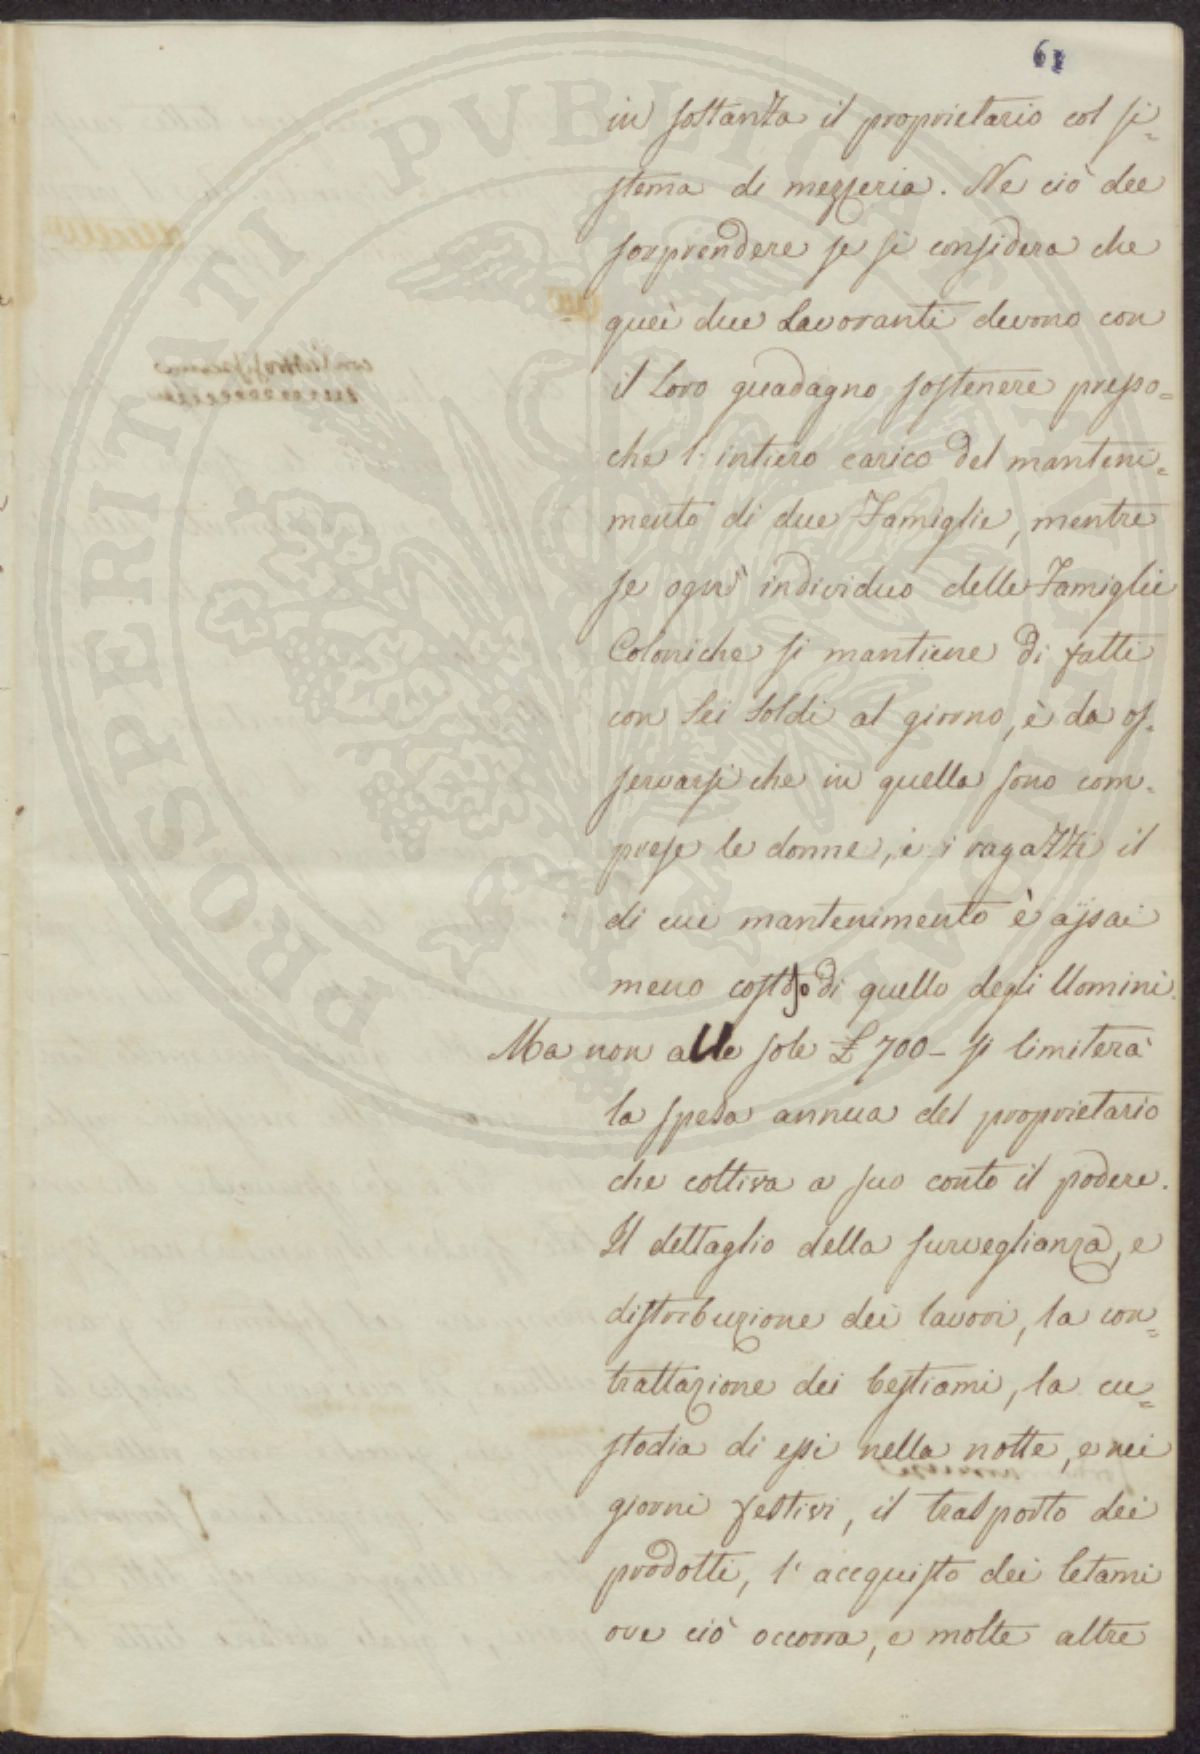 61
in sostanza il proprietario col si=
stema di mezzeria. Ne ciò dee
sorprendere se si considera che
quei due Lavoranti devono con
il Loro guadagno sostenere presso=
che l'intiero carico del manteni=
mento di due Famiglie, mentre
se ogni individuo delle Famiglie
Coloniche si mantiene di fatti
con Sei Soldi al giorno, è da os=
servarsi che in quella sono com=
prese le donne, e i ragazzi il
di cui mantenimento è assai
meno costoso di quello degli Uomini.
Ma non alle sole £ 700 - si limiterà
la spesa annua del proprietario
che coltiva a suo conto il podere.
Il dettaglio della surveglianza, e
distribuzione dei lavori, la con=
trattazione dei bestiami, la cu=
stodia di essi nella notte, e nei
giorni festivi, il trasporto dei
prodotti, l'accquisto dei letami
ove ciò occorra, e molte altre
PROSPERITATI PVBLICAE AVGENDAE